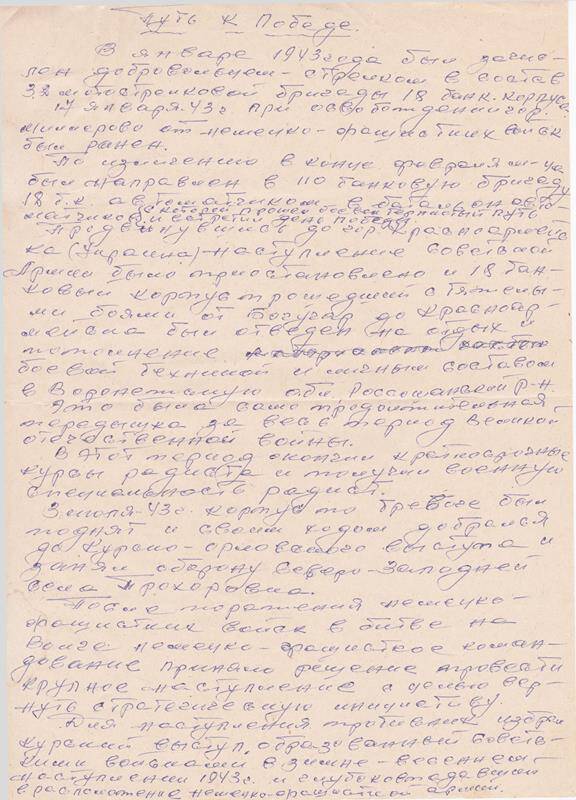 Путь к Победе.
В январе 1943 года был зачис-
лен добровольцем-стрелком в состав
32 мотострелковой бригады 18 танк. корпуса.
17 января 43 г. при освобождении гор.
Миллерово от немецко-фашистских войск
был ранен.
По излечению в конце февраля м-ца
был направлен в 110 танковую бригаду
18 т.к. автоматчиком в батальон авто-
матчиков, с которой прошел боевой тернистый путь
и встретил день победы.
Продвинувшись до гор. Красноармейс-
ка (Украина) - наступление Советской
Армии было приостановлено и 18 тан-
ковый корпус прошедший с тяжелы-
ми боями от Богучар до Красноар-
мейска был отведен на отдых и
пополнение
боевой техникой и личным составом
в Воронежскую обл. Россошанский р-н.
Это была само продолжительная
передышка за весь период Великой
отечественной войны.
В этот период окончил краткосрочные
курсы радиста и получил военную
специальность радист.
июля 43 г. корпус по тревоге был
поднят и своим ходом добрался
до Курско-орловского выступа и
занял оборону северо-западней
села Прохоровка.
После поражения немецко-
фашистких войск в битве на
Волге немецко-фашисткое коман-
дование приняло решение провести
крупное наступление с целью вер-
нуть стратегическую инициативу.
Для наступления противник избрал
курский выступ, образованный советс-
кими войсками в зимне-весеннем
наступлении 1943 г. и глубоко вдавший
в расположение немецко-фашисткой армии.